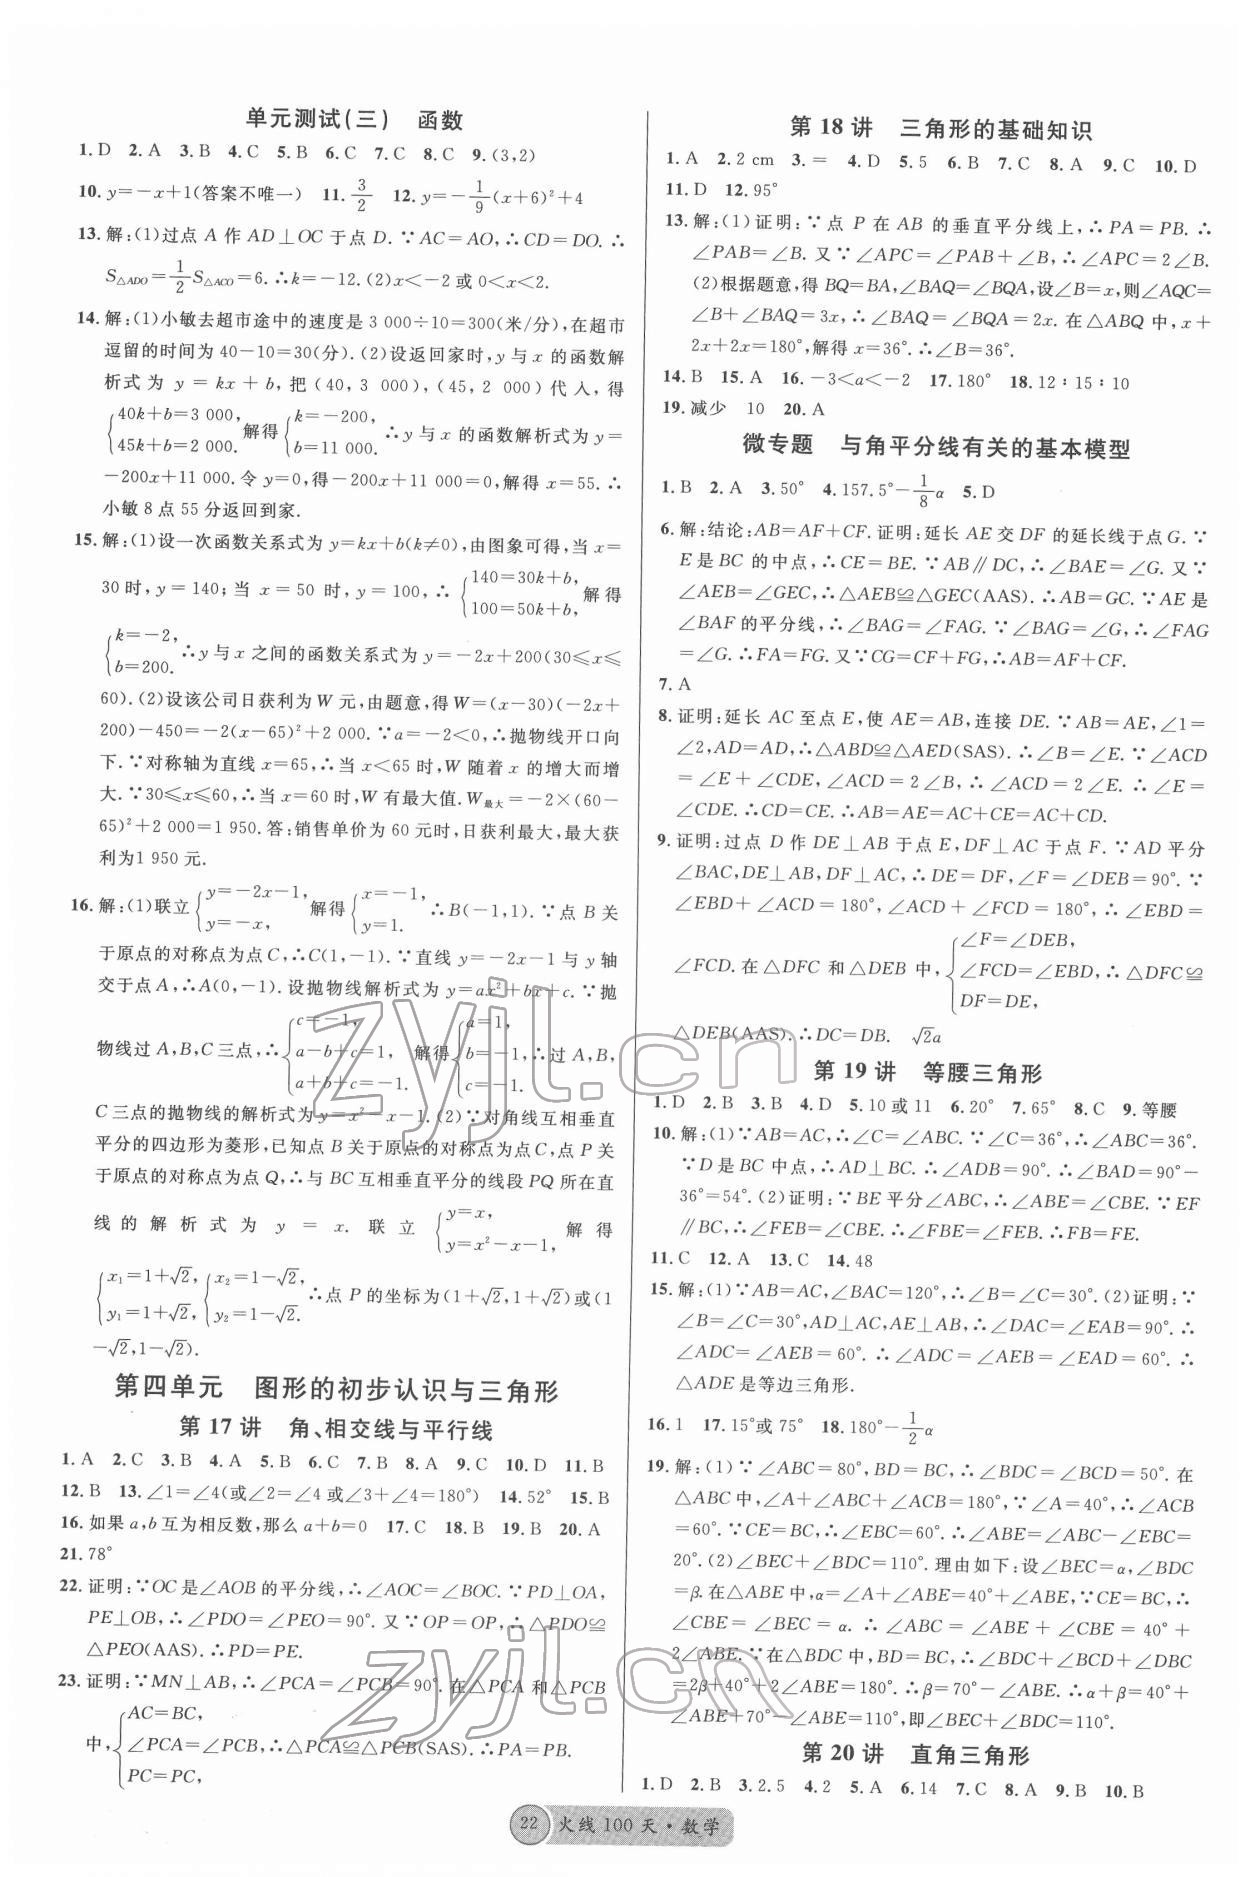 单元测试(三)　函数
1. D　2. A　3. B　4. C　5. B　6. C　7. C　8. C　9. (3,2)
10. y=-x+1(答案不唯一)　11. 3/2　12. y=-1/9(x+6)²+4
13. 解:(1)过点 A 作 AD⊥OC 于点 D. ∵AC=AO,∴CD=DO. ∴
S△ADO=1/2S△ACO=6. ∴k=-12. (2)x<-2或0<x<2.
14. 解:(1)小敏去超市途中的速度是 3 000÷10=300(米/分),在超市
逗留的时间为 40-10=30(分). (2)设返回家时,y 与 x 的函数解
析式为 y=kx+b,把 (40,3 000),(45,2 000) 代入,得
{40k+b=3 000, 45k+b=2 000. 解得 {k=-200, b=11 000. ∴y 与 x 的函数解析式为 y=
-200x+11 000. 令 y=0,得-200x+11 000=0,解得 x=55. ∴
小敏 8 点 55 分返回到家.
15. 解:(1)设一次函数关系式为 y=kx+b(k≠0),由图象可得,当 x=
30 时,y=140;当 x=50 时,y=100,∴{140=30k+b, 100=50k+b, 解得
{k=-2, b=200. ∴y 与 x 之间的函数关系式为 y=-2x+200(30≤x≤
60). (2)设该公司日获利为 W 元,由题意,得 W=(x-30)(-2x+
200)-450=-2(x-65)²+2 000. ∵a=-2<0,∴抛物线开口向
下. ∵对称轴为直线 x=65,∴当 x<65 时,W 随着 x 的增大而增
大. ∵30≤x≤60,∴当 x=60 时,W 有最大值. W最大=-2×(60-
65)²+2 000=1 950. 答:销售单价为 60 元时,日获利最大,最大获
利为1 950 元.
16. 解:(1)联立{y=-2x-1, y=-x, 解得{x=-1, y=1. ∴B(-1,1). ∵点 B 关
于原点的对称点为点 C,∴C(1,-1). ∵直线 y=-2x-1 与 y 轴
交于点 A,∴A(0,-1). 设抛物线解析式为 y=ax²+bx+c. ∵抛
物线过 A,B,C 三点,∴{c=-1, a-b+c=1, a+b+c=-1. 解得{a=1, b=-1, c=-1. ∴过 A,B,
C 三点的抛物线的解析式为 y=x²-x-1. (2)∵对角线互相垂直
平分的四边形为菱形,已知点 B 关于原点的对称点为点 C,点 P 关
于原点的对称点为点 Q,∴与 BC 互相垂直平分的线段 PQ 所在直
线的解析式为 y=x. 联立{y=x, y=x²-x-1, 解得
{x₁=1+√2, y₁=1+√2, {x₂=1-√2, y₂=1-√2. ∴点 P 的坐标为(1+√2,1+√2)或(1
-√2,1-√2).
第四单元　图形的初步认识与三角形
第 17 讲　角、相交线与平行线
1. A　2. C　3. B　4. A　5. B　6. C　7. B　8. A　9. C　10. D　11. B
12. B　13. ∠1=∠4(或∠2=∠4 或∠3+∠4=180°)　14. 52°　15. B
16. 如果 a,b 互为相反数,那么 a+b=0　17. C　18. B　19. B　20. A
21. 78°
22. 证明:∵OC 是∠AOB 的平分线,∴∠AOC=∠BOC. ∵PD⊥OA,
PE⊥OB,∴∠PDO=∠PEO=90°. 又∵OP=OP,∴△PDO≌
△PEO(AAS). ∴PD=PE.
23. 证明:∵MN⊥AB,∴∠PCA=∠PCB=90°. 在△PCA 和△PCB
中,{AC=BC, ∠PCA=∠PCB, PC=PC, ∴△PCA≌△PCB(SAS). ∴PA=PB.
第 18 讲　三角形的基础知识
1. A　2. 2 cm　3. =　4. D　5. 5　6. B　7. C　8. A　9. C　10. D
11. D　12. 95°
13. 解:(1)证明:∵点 P 在 AB 的垂直平分线上,∴PA=PB. ∴
∠PAB=∠B. 又∵∠APC=∠PAB+∠B,∴∠APC=2∠B.
(2)根据题意,得 BQ=BA,∠BAQ=∠BQA,设∠B=x,则∠AQC=
∠B+∠BAQ=3x,∴∠BAQ=∠BQA=2x. 在△ABQ 中,x+
2x+2x=180°,解得 x=36°. ∴∠B=36°.
14. B　15. A　16. -3<a<-2　17. 180°　18. 12∶15∶10
19. 减少　10　20. A
微专题　与角平分线有关的基本模型
1. B　2. A　3. 50°　4. 157.5°-1/8α　5. D
6. 解:结论:AB=AF+CF. 证明:延长 AE 交 DF 的延长线于点 G. ∵
E 是 BC 的中点,∴CE=BE. ∵AB∥DC,∴∠BAE=∠G. 又∵
∠AEB=∠GEC,∴△AEB≌△GEC(AAS). ∴AB=GC. ∵AE 是
∠BAF 的平分线,∴∠BAG=∠FAG. ∵∠BAG=∠G,∴∠FAG
=∠G. ∴FA=FG. 又∵CG=CF+FG,∴AB=AF+CF.
7. A
8. 证明:延长 AC 至点 E,使 AE=AB,连接 DE. ∵AB=AE,∠1=
∠2,AD=AD,∴△ABD≌△AED(SAS). ∴∠B=∠E. ∵∠ACD
=∠E+∠CDE,∠ACD=2∠B,∴∠ACD=2∠E. ∴∠E=
∠CDE. ∴CD=CE. ∴AB=AE=AC+CE=AC+CD.
9. 证明:过点 D 作 DE⊥AB 于点 E,DF⊥AC 于点 F. ∵AD 平分
∠BAC,DE⊥AB,DF⊥AC,∴DE=DF,∠F=∠DEB=90°. ∵
∠EBD+∠ACD=180°,∠ACD+∠FCD=180°,∴∠EBD=
∠FCD. 在△DFC 和△DEB 中,{∠F=∠DEB, ∠FCD=∠EBD, DF=DE, ∴△DFC≌
△DEB(AAS). ∴DC=DB.　√2a
第 19 讲　等腰三角形
1. D　2. B　3. B　4. D　5. 10 或 11　6. 20°　7. 65°　8. C　9. 等腰
10. 解:(1)∵AB=AC,∴∠C=∠ABC. ∵∠C=36°,∴∠ABC=36°.
∵D 是 BC 中点,∴AD⊥BC. ∴∠ADB=90°. ∴∠BAD=90°-
36°=54°. (2)证明:∵BE 平分∠ABC,∴∠ABE=∠CBE. ∵EF
∥BC,∴∠FEB=∠CBE. ∴∠FBE=∠FEB. ∴FB=FE.
11. C　12. A　13. C　14. 48
15. 解:(1)∵AB=AC,∠BAC=120°,∴∠B=∠C=30°. (2)证明:∵
∠B=∠C=30°,AD⊥AC,AE⊥AB,∴∠DAC=∠EAB=90°. ∴
∠ADC=∠AEB=60°. ∴∠ADC=∠AEB=∠EAD=60°. ∴
△ADE 是等边三角形.
16. 1　17. 15°或 75°　18. 180°-1/2α
19. 解:(1)∵∠ABC=80°,BD=BC,∴∠BDC=∠BCD=50°. 在
△ABC 中,∠A+∠ABC+∠ACB=180°,∵∠A=40°,∴∠ACB
=60°. ∵CE=BC,∴∠EBC=60°. ∴∠ABE=∠ABC-∠EBC=
20°. (2)∠BEC+∠BDC=110°. 理由如下:设∠BEC=α,∠BDC
=β. 在△ABE 中,α=∠A+∠ABE=40°+∠ABE,∵CE=BC,∴
∠CBE=∠BEC=α. ∴∠ABC=∠ABE+∠CBE=40°+
2∠ABE. ∵在△BDC 中,BD=BC,∴∠BDC+∠BCD+∠DBC
=2β+40°+2∠ABE=180°. ∴β=70°-∠ABE. ∴α+β=40°+
∠ABE+70°-∠ABE=110°,即∠BEC+∠BDC=110°.
第 20 讲　直角三角形
1. D　2. B　3. 2.5　4. 2　5. A　6. 14　7. C　8. A　9. B　10. B
22　火线 100 天·数学
zyjl.cn
zyjl.cn